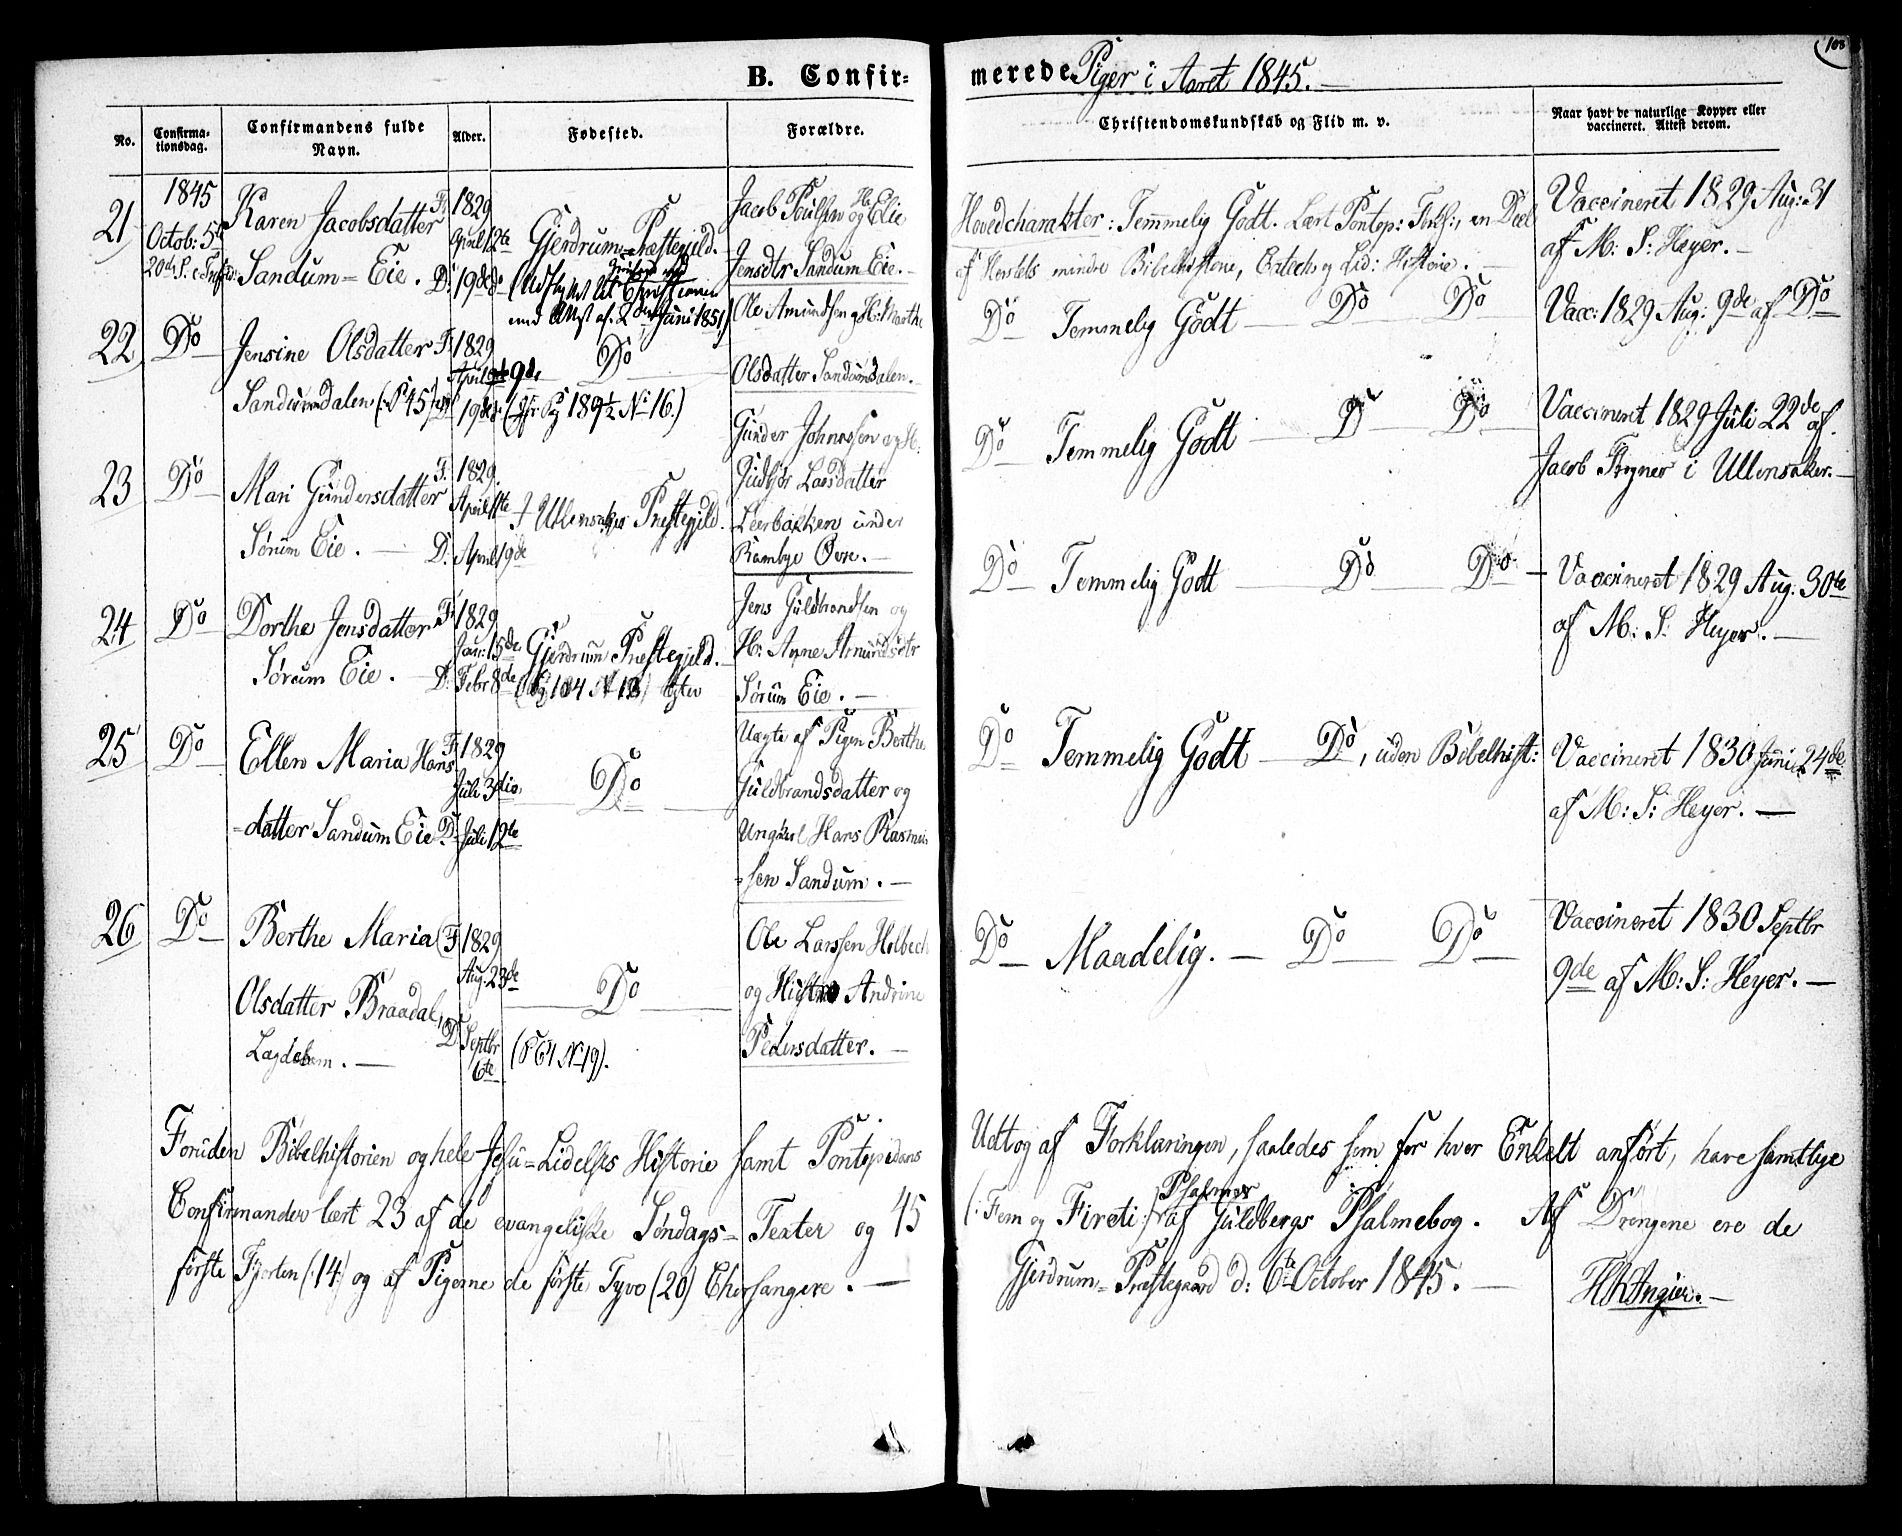 B. Confir-
merede Piger i Aaret 1845.
108
No.
Confirma-
tionsdag.
Confirmandens fulde
Navn.
Alder.
Fødested.
Forældre.
Christendomskundskab og Flid m. v.
Naar havt de naturlige Kopper eller
vaccineret. Attest derom.
21
1845
Octob: 5te
Karen Jacobsdatter
Sandum-Eie.
F. 1829
April 12te
D. 19de
Gjerdrums Præstegjeld.
med Attest af 2den Juni 1851)
Jacob Poulsen og H. Elie
Jensdtr Sandum-Eie.
Hovedcharakter: Temmelig Godt. Lært Pontop: Forkl:, en Deel
af Herslebs mindre Bibelhistorie, Catech: og Lid: Historie.
Vaccineret 1829 Aug: 31
af M: S: Heyer.
22
Do
Jensine Olsdatter
Sandumdalen
F. 1829
April 9de
D. 19de
Do
(cfr Pg 189½ No 16.)
Ole Amundsen og H: Marthe
Olsdatter Sandumdalen.
Do Temmelig Godt Do Do
Vacc: 1829 Aug: 9de af Do
23
Do
Mari Gundersdatter
Sørum Eie.
F. 1829.
D. April 19de
I Ullensaker Præstegjeld.
Gunder Johnessen og H.
Larsdatter
Leerbakken under
Rambye Øvre.
Do Temmelig Godt Do Do
Vaccineret 1829 Juli 22de af
Jacob Trygner i Ullensaker.
24
Do
Dorthe Jensdatter
Sørum Eie.
F. 1829
Jan: 15de
D. Febr 8de
Gjerdrum Præstegjeld.
Jens Guldbrandsen og
H: Anne Amundsdtr
Sørum Eie.
Do Temmelig Godt Do Do
Vaccineret 1829 Aug: 30te
af M: S: Heyer.
25
Do
Ellen Maria Hans
=datter Sandum Eie
F. 1829
Juli 3die
D. Juli 12te
Do
Uægte af Pigen Berthe
Guldbrandsdatter og
Ungkarl Hans Rasmus
=sen Sandum.
Do Temmelig Godt Do, uden Bibelhist:
Vaccineret 1830 Junii 24de
af M: S: Heyer.
26
Do
Berthe Maria
Olsdatter Braadal,
Lægdebarn.
F. 1829
Aug: 23de
D. Septbr
6te
Do
(P 61 No 19).
Ole Larssen Holbech
og Hustro Andrine
Pedersdatter.
Do Maadelig. Do Do
Vaccineret 1830 Septbr
9de af M: S: Heyer.
Foruden Bibelhistorien og hele Jesu-Lidelses Historie samt Pontopidans
Confirmander lært 23 af de evangeliske Søndags-Texter og 45
første Fjorten (14) og af Pigerne de første Tyve (20) Chorsangere.
Udtog af Forklaringen, saaledes som for hver Enkelt anført, have samtlige
Psalmer
(: Fem og Fireti :) af Guldbergs Psalmebog. Af Drengene ere de
Gjerdrum-Præstegaard d: 6te October 1845.
HRAngier.